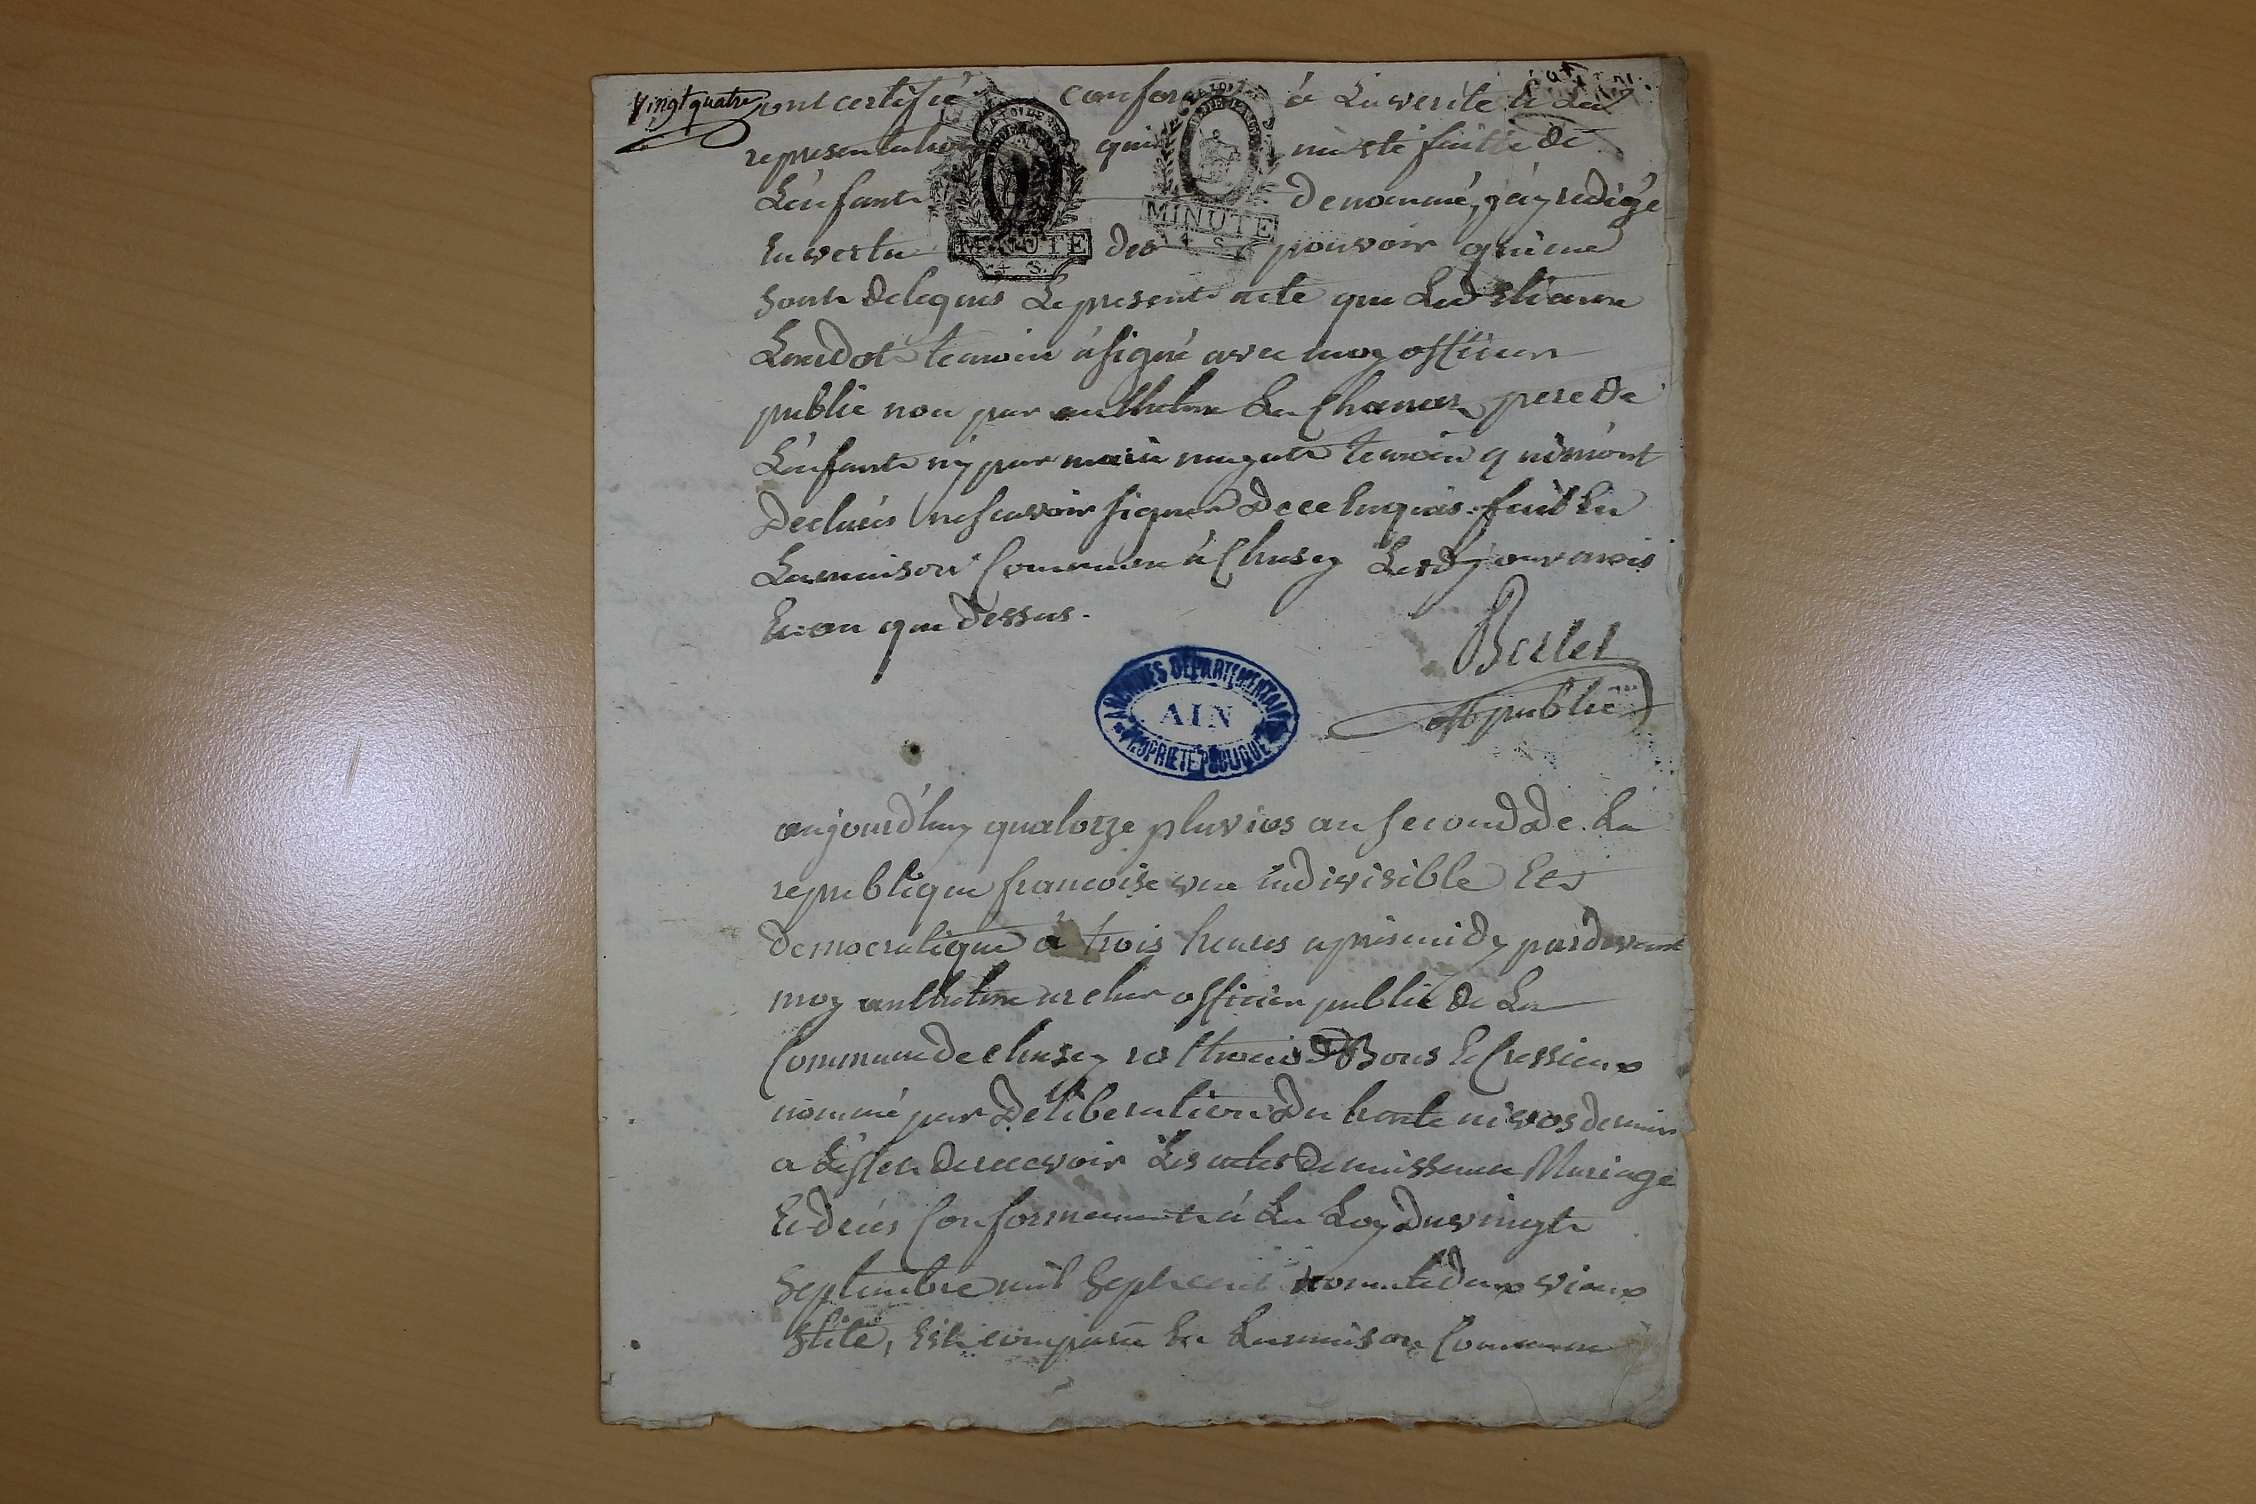 Vingt quatre
ont certifié conforme à La verité et La
representation qui m'a eté faitte de
L'enfant denommé, j'ay redigé
En vertu des pouvoir qui me
sont delegués Le present acte que Led Etienne
temoin a signé avec moy officier
public non par anthelme La Chanar pere de
L'enfant ny par temoin qui m'ont
declarés ne scavoir signer de ce Enquis. fait En
La maison Commune à Chasey Lesdy jour mois
Et an que dessus.
LA LOI
LA LOI
MINUTE
4 S.
MINUTE
4 S.
Berlet
off public
ARCHIVES DEPARTEMENTALES
AIN
PROPRIETE PUBLIQUE
aujourd'huy quatorze pluvios an second De La
republique francoise une indivisible Et
democratique à trois heures apres midy pardevant
moy anthelme officier public de La
Commune de Chasey Bons Et Cressieux
nommé par Déliberation Du trente nivos dernier
a L'effet de recevoir Les actes de naissance Mariage
Et décés Conformement à La Loy Du vingt
Septembre mil Sept cent nonante deux vieux
Stile, Est comparu En La maison Commune